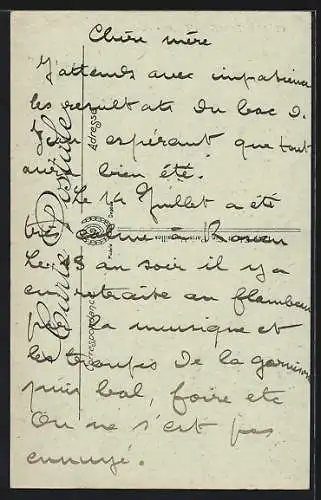 Chère mère
J'attends avec impatience
les résultats du bac d.
Jean espérant que tout
aura bien été.
Le 14 Juillet a été
très calme à Rouen
Le 13 au soir il y a
eu retraite au flambeau
par la musique et
les troupes de la garnison
puis bal, foire etc
On ne s'est pas
ennuyé.
Carte Postale
Correspondance
Adresse